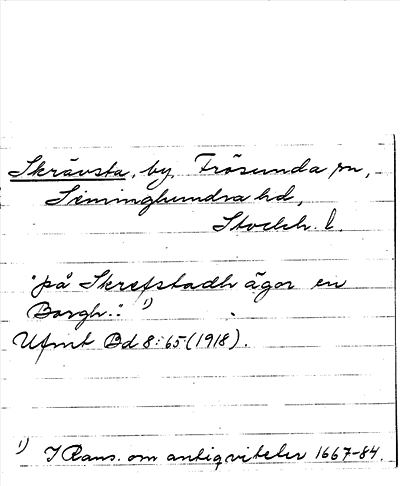 Skrävsta, by, Frösunda sn,
Seminghundra hd,
Stockh. l.
"på Skrefstadh ägor en
Borgh.". 1)
Ufmt Bd 8:65 (1918).
1) I Rans. om antiqviteter 1667-84.